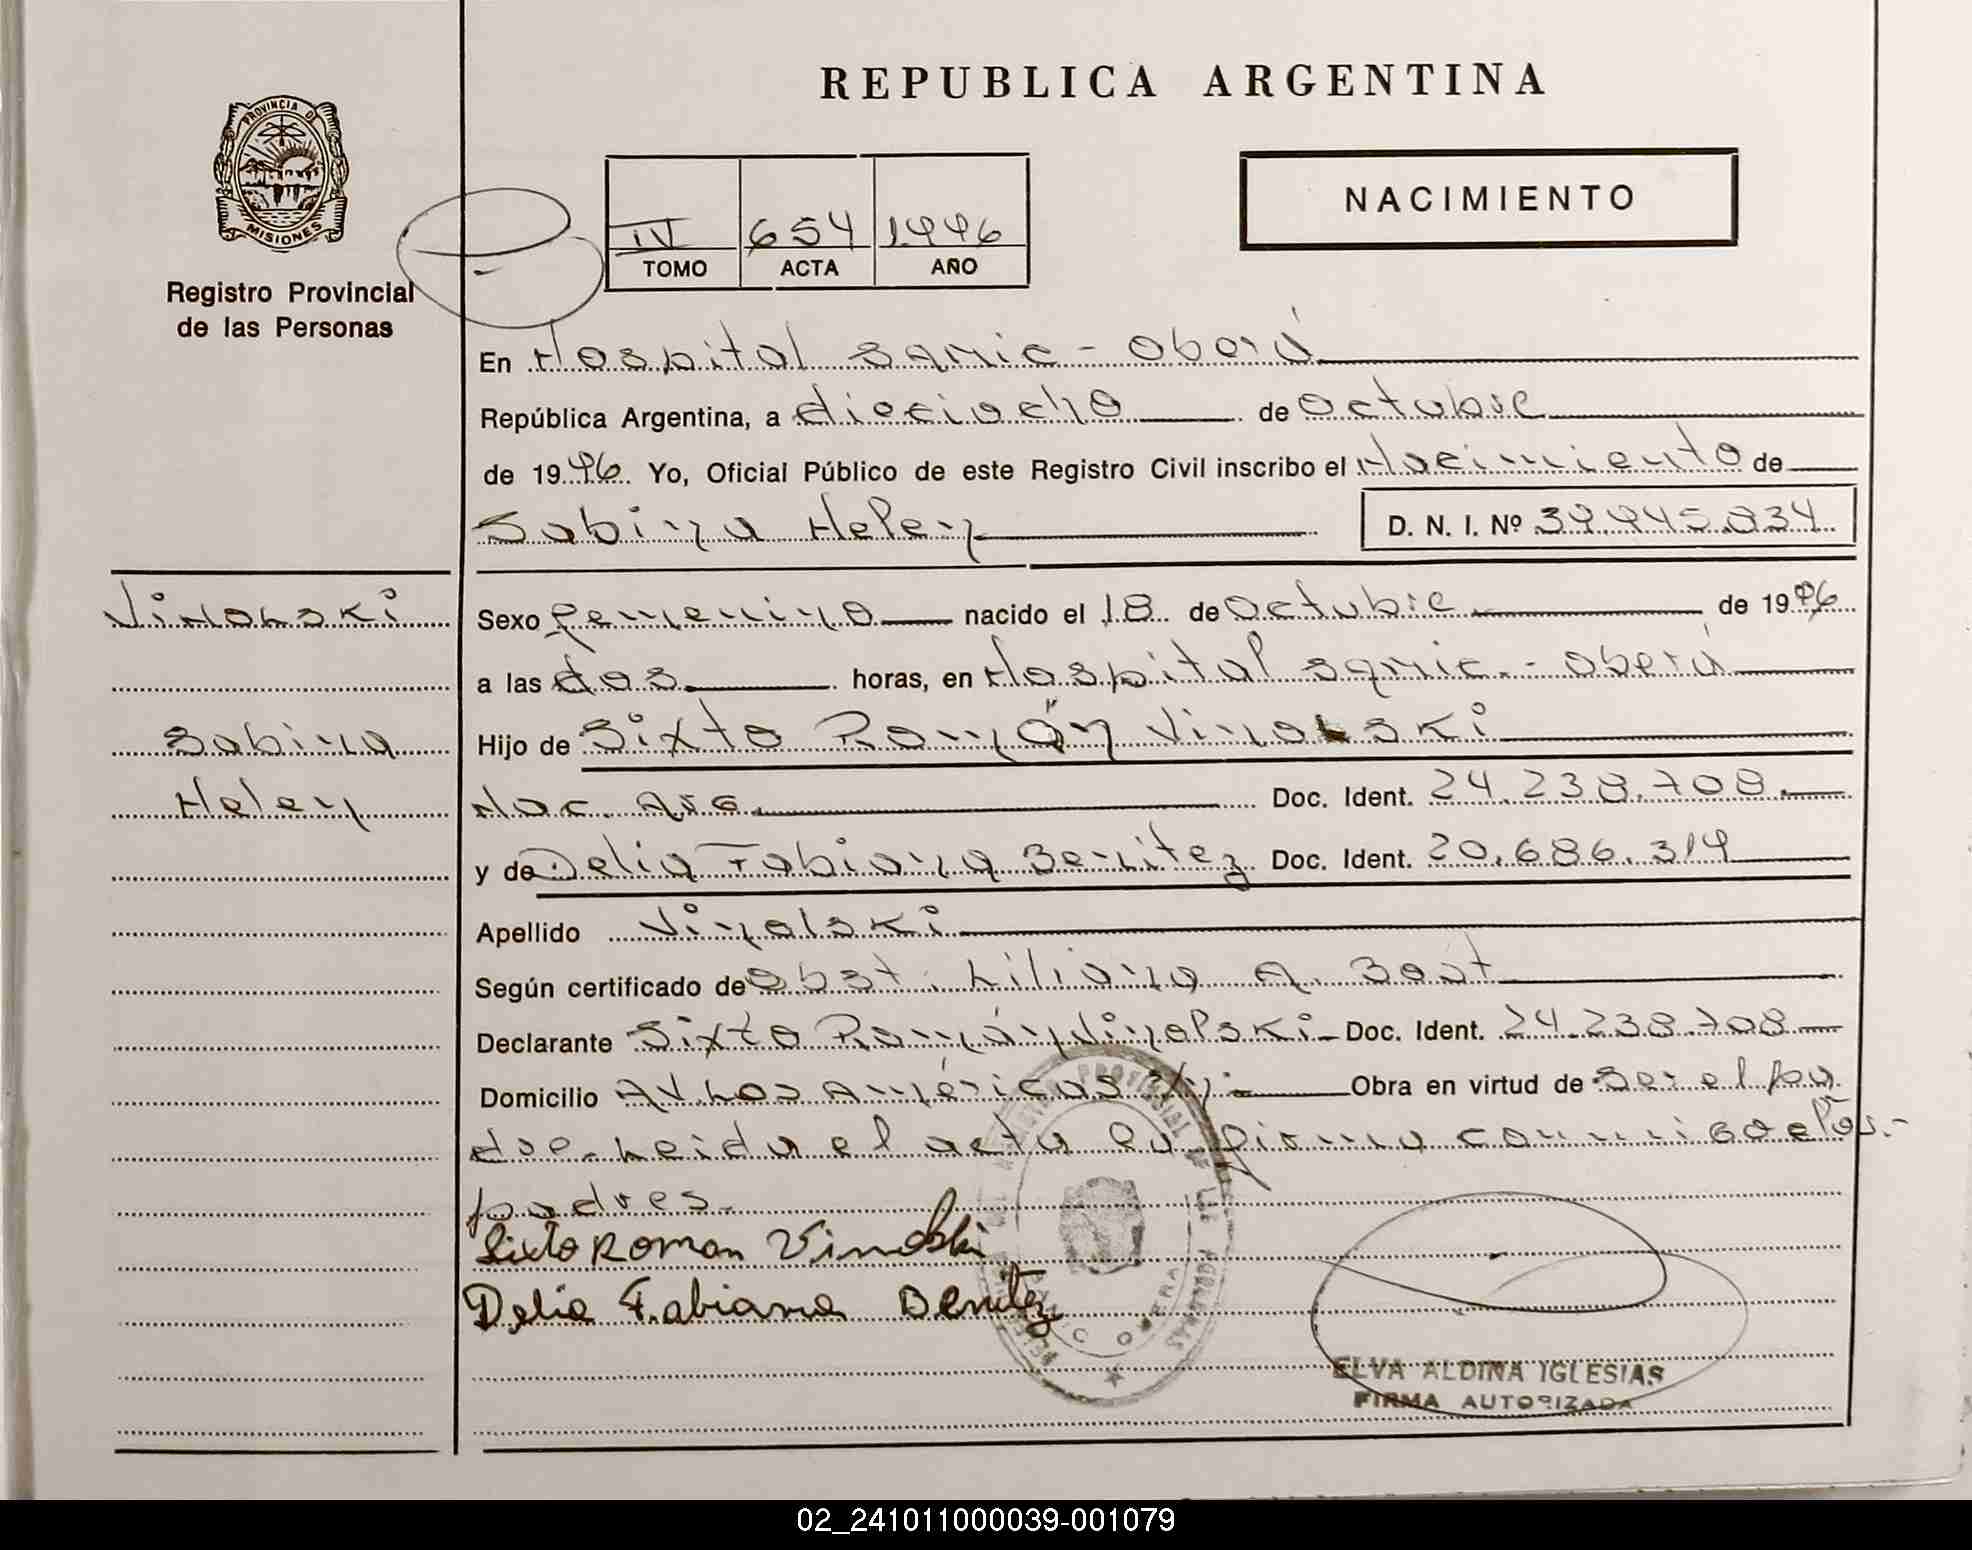 REPUBLICA ARGENTINA
PROVINCIA DE
MISIONES
Registro Provincial
de las Personas
IV 654 1996
TOMO ACTA AÑO
NACIMIENTO
En Hospital Samic - Oberá
República Argentina, a dieciocho de Octubre
de 1996. Yo, Oficial Público de este Registro Civil inscribo el Nacimiento de
Sabina Helen D. N. I. Nº 39.945.834
Vinolski
Sabina
Helen
Sexo femenino nacido el 18 de Octubre de 1996
a las dos horas, en Hospital Samic. - Oberá
Hijo de Sixto Román Vinolski
Nac. Arg. Doc. Ident. 24.238.708.
y de Delia Fabiana Benitez Doc. Ident. 20.686.319
Apellido Vinolski
Según certificado de Obst. Liliana A.
Declarante Sixto Román Vinolski - Doc. Ident. 24.238.708
Domicilio Av. Los Américas S/N; Obra en virtud de Ser el pa
dre. Leida el acta la firma conmigo los.-
padres.
Sixto Roman Vinolski
Delia Fabiana Benitez
ELVA ALDINA IGLESIAS
FIRMA AUTORIZADA
02_241011000039-001079